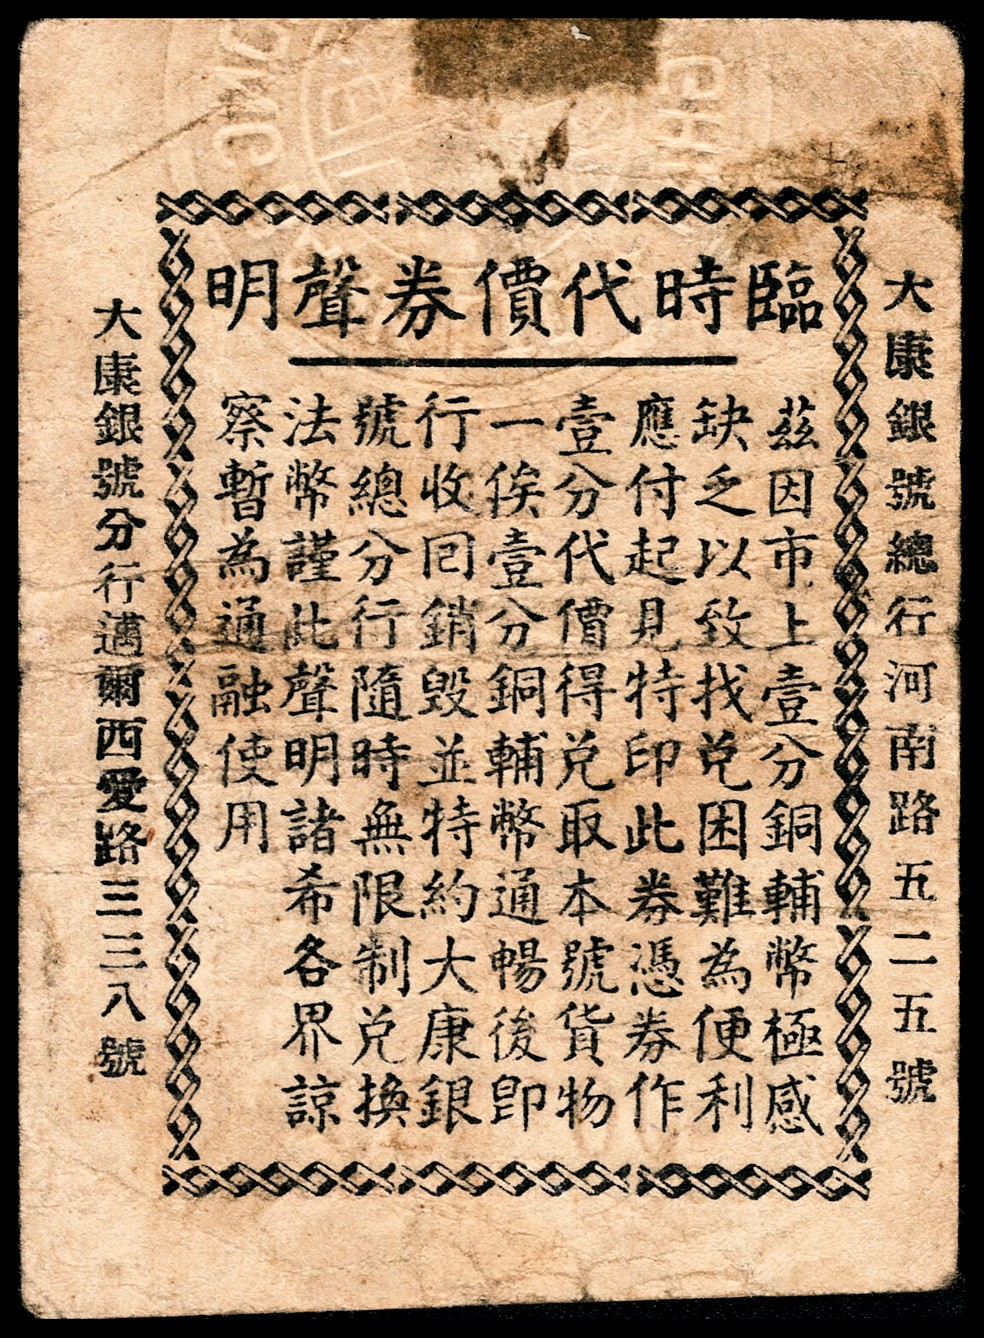 臨時代價券聲明
茲因市上壹分銅輔幣極感
缺乏以致找兌困難為便利
應付起見特印此券憑券作
壹分代價得兌取本號貨物
一俟壹分銅輔幣通暢後即
行收回銷毀並特約大康銀
號總分行隨時無限制兌換
法幣謹此聲明諸希各界諒
察暫為通融使用
大康銀號總行河南路五二五號
大康銀號分行邁爾西愛路三三八號